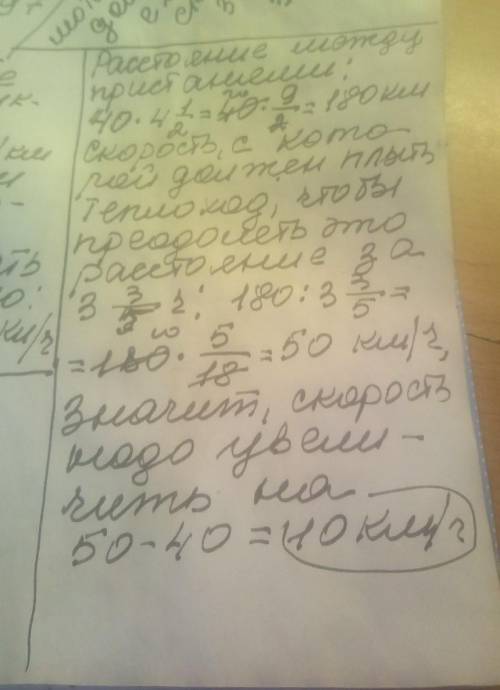 Расстояние между
пристанями:
40 · 4 1/2 = 40 · 9/2 = 180 км
скорость, с кото
рой должен плыть
теплоход, чтобы
преодолеть это
расстояние за
3 3/5 ч: 180 : 3 3/5 =
= 180 · 5/18 = 50 км/ч,
Значит, скорость
надо увели-
чить на
50 - 40 = 10 км/ч
км
ть
км/ч